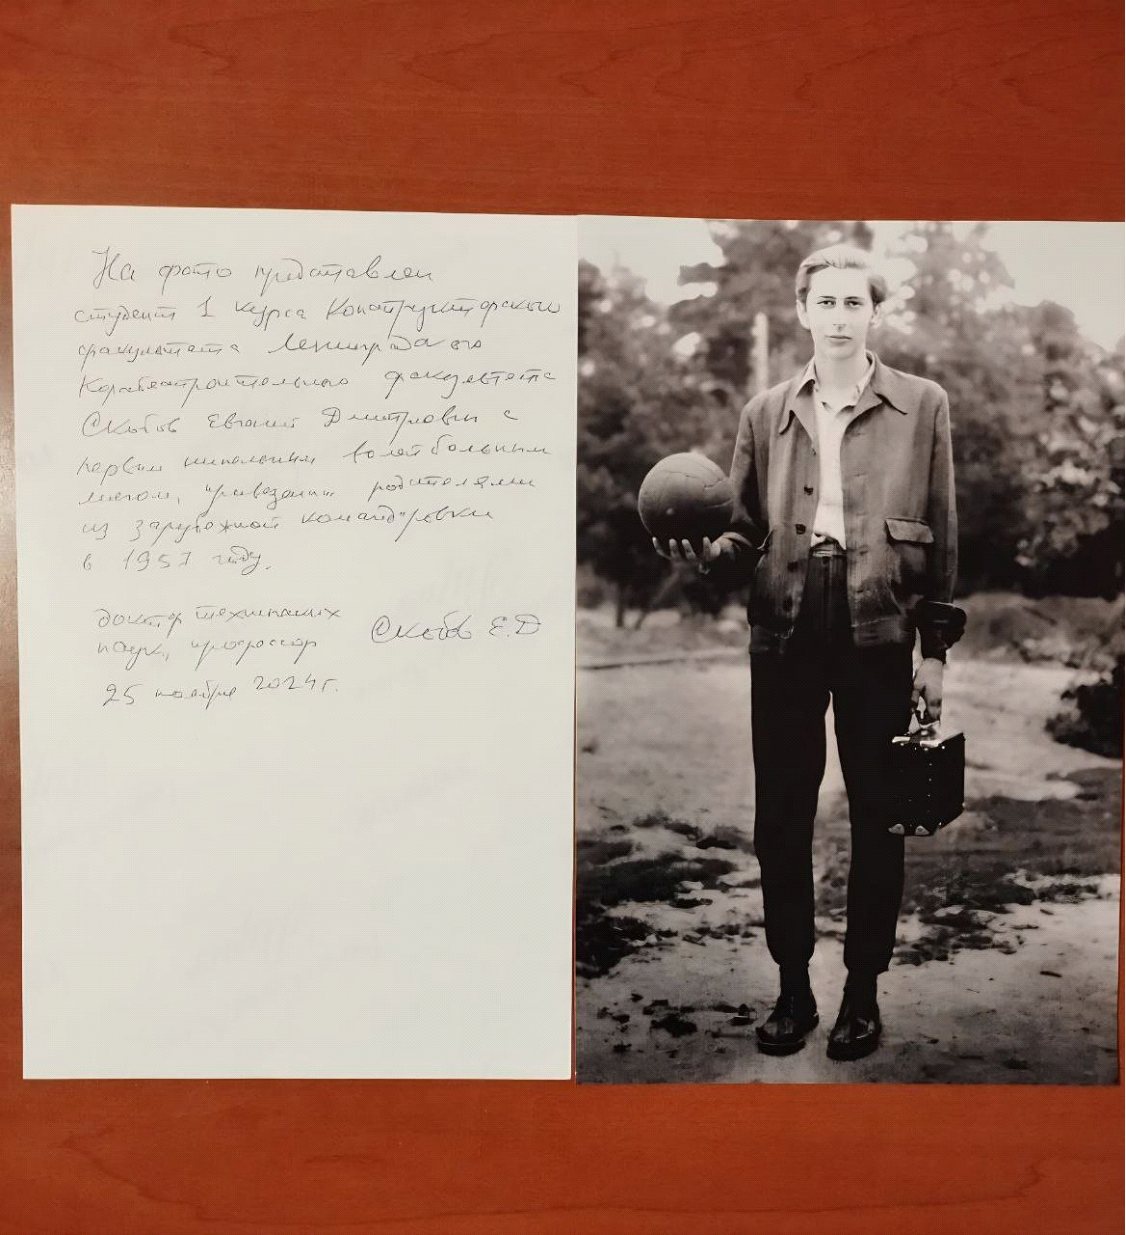 На фото представлен
студент 1 курса Конструкторского
факультета Ленинградского
Кораблестроительного факультета
Скобов Евгений Дмитриевич с
первым ниппельным волейбольным
мячом, привезенным родителями
из зарубежной командировки
в 1957 году.
доктор технических
наук, профессор Скобов Е.Д
25 ноября 2024г.